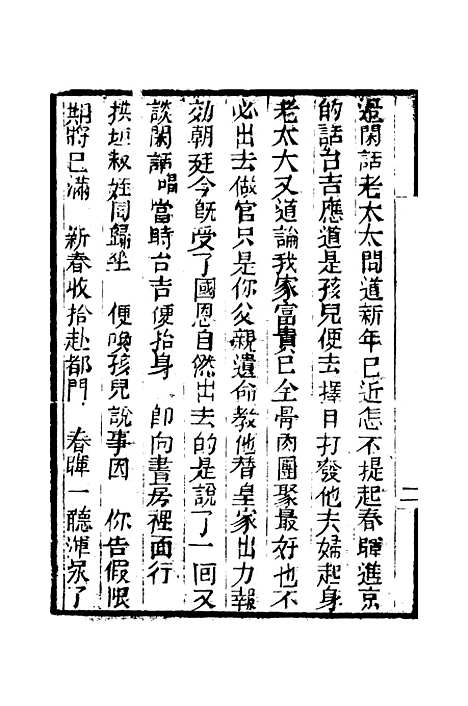 過閑話老太太問道新年已近怎不提起春暉進京
的話台吉應道是孩兒便去擇日打發他夫婦起身
老太太又道論我家富貴已全骨肉團聚最好也不
必出去做官只是你父親遺命教他替皇家出力報
効朝廷今旣受了國恩自然出去的是說了一回又
談閑話唱當時台吉便抬身　卽向書房裡面行
拱　叔姪同歸坐　便喚孩兒說事因　你告假限
期將已滿　新春收拾赴都門　春暉一聽渾　了
二